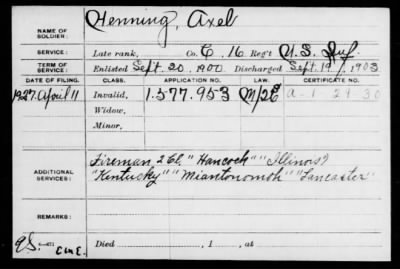 Henning, Axel
NAME OF
SOLDIER:
SERVICE: Late rank, Co. C, 16 Reg't U.S. Inf.
TERM OF
SERVICE: Enlisted Sept. 20, 1900 Discharged Sept. 19, 1903
DATE OF FILING. CLASS. APPLICATION NO. LAW. CERTIFICATE NO.
1927. April 11 Invalid, 1.577.953
Widow,
Minor,
Fireman, 2 Cl, "Hancock" "Illinois"
ADDITIONAL
SERVICES: "Kentucky" "Miantonomoh" "Lancaster"
REMARKS:
Died , 1 , at